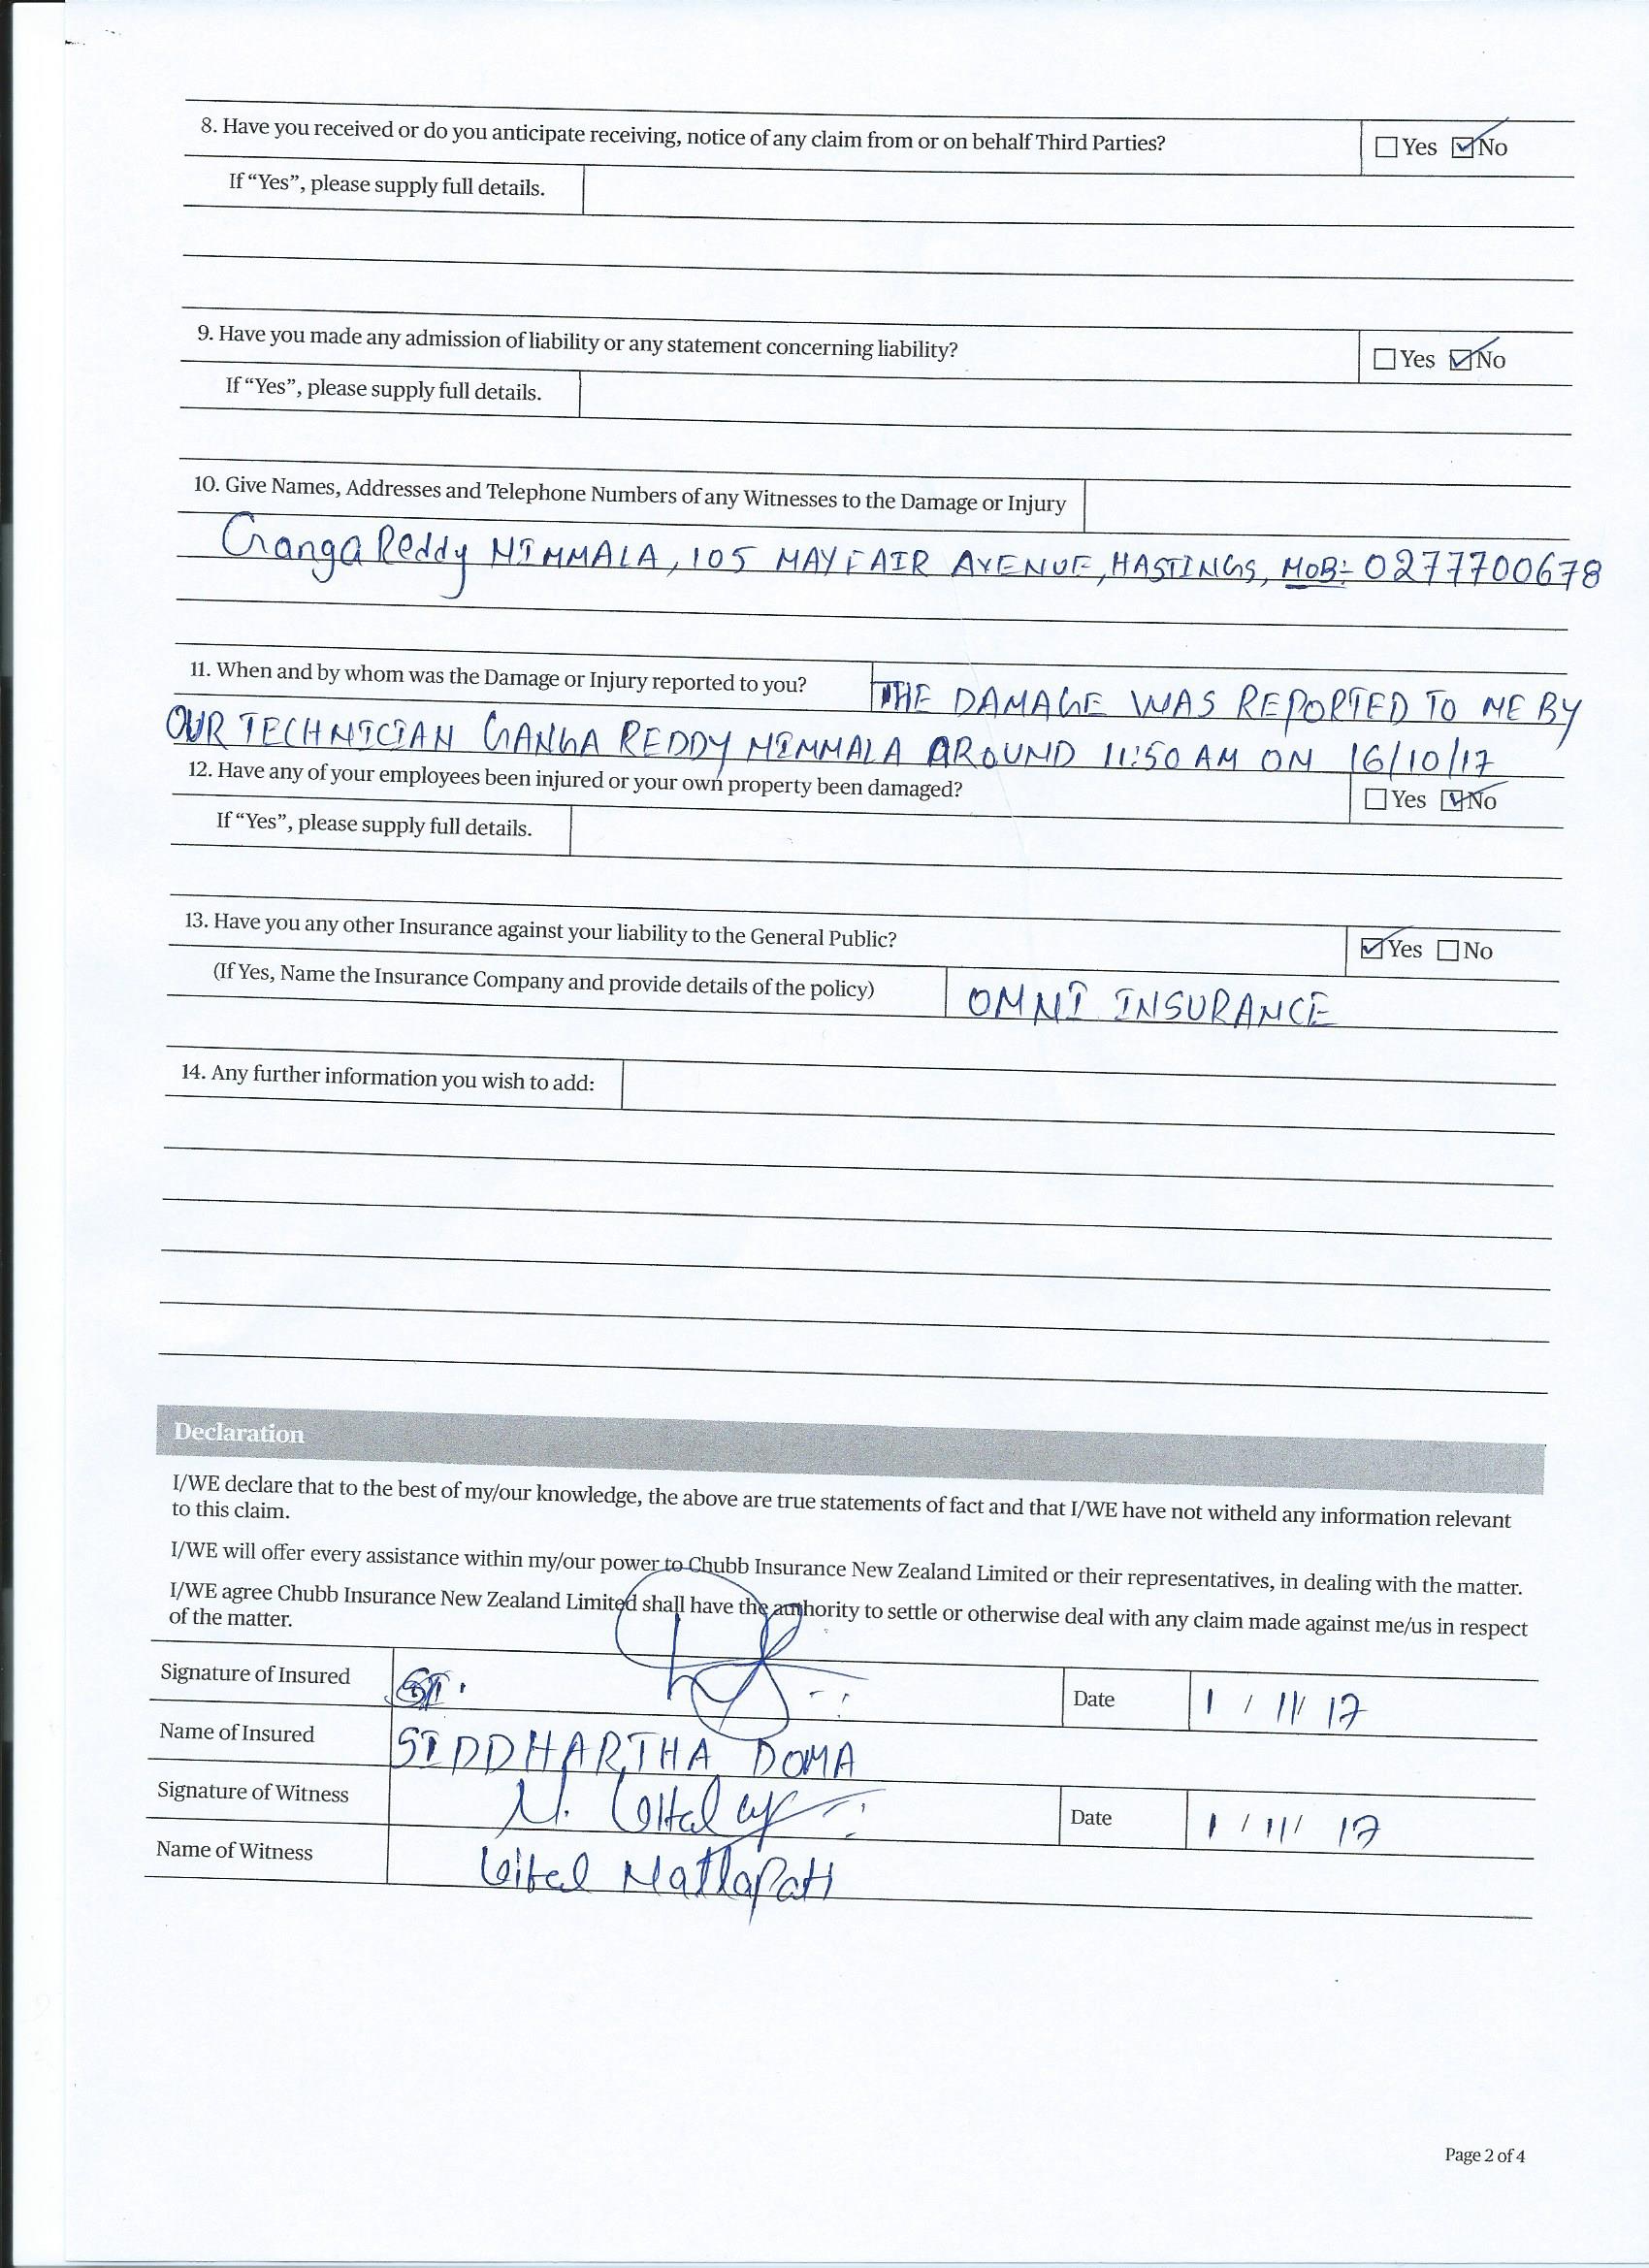 8. Have you received or do you anticipate receiving, notice of any claim from or on behalf Third Parties? ☐ Yes ☑ No
If “Yes”, please supply full details.
9. Have you made any admission of liability or any statement concerning liability? ☐ Yes ☑ No
If “Yes”, please supply full details.
10. Give Names, Addresses and Telephone Numbers of any Witnesses to the Damage or Injury
Ganga Reddy NIMMALA, 105 MAYFAIR AVENUE, HASTINGS, MOB: 0277700678
11. When and by whom was the Damage or Injury reported to you? THE DAMAGE WAS REPORTED TO ME BY
OUR TECHNICIAN GANGA REDDY NIMMALA AROUND 11:50 AM ON 16/10/17
12. Have any of your employees been injured or your own property been damaged? ☐ Yes ☑ No
If “Yes”, please supply full details.
13. Have you any other Insurance against your liability to the General Public? ☑ Yes ☐ No
(If Yes, Name the Insurance Company and provide details of the policy) OMNI INSURANCE
14. Any further information you wish to add:
Declaration
I/WE declare that to the best of my/our knowledge, the above are true statements of fact and that I/WE have not witheld any information relevant
to this claim.
I/WE will offer every assistance within my/our power to Chubb Insurance New Zealand Limited or their representatives, in dealing with the matter.
I/WE agree Chubb Insurance New Zealand Limited shall have the authority to settle or otherwise deal with any claim made against me/us in respect
of the matter.
Signature of Insured Date 1 / 11/ 17
Name of Insured SIDDHARTHA DOMA
Signature of Witness Date 1 / 11/ 17
Name of Witness
Page 2 of 4